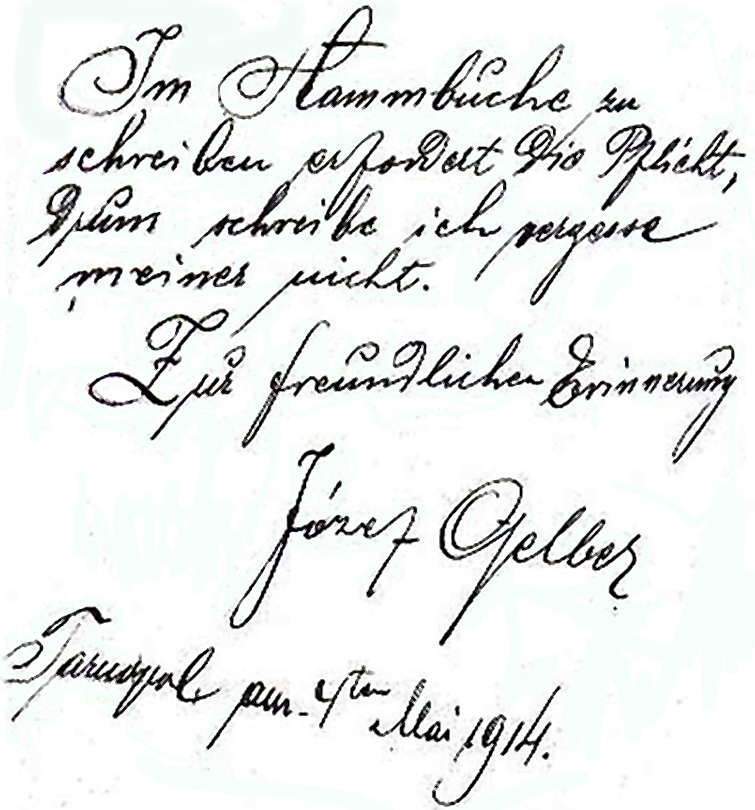 Im Stammbuche zu
schreiben erfordert die Pflicht,
Drum schreibe ich vergesse
meiner nicht.
Zur freundlichen Erinnerung
Józef Gelber
Tarnopol am 4ten Mai 1914.